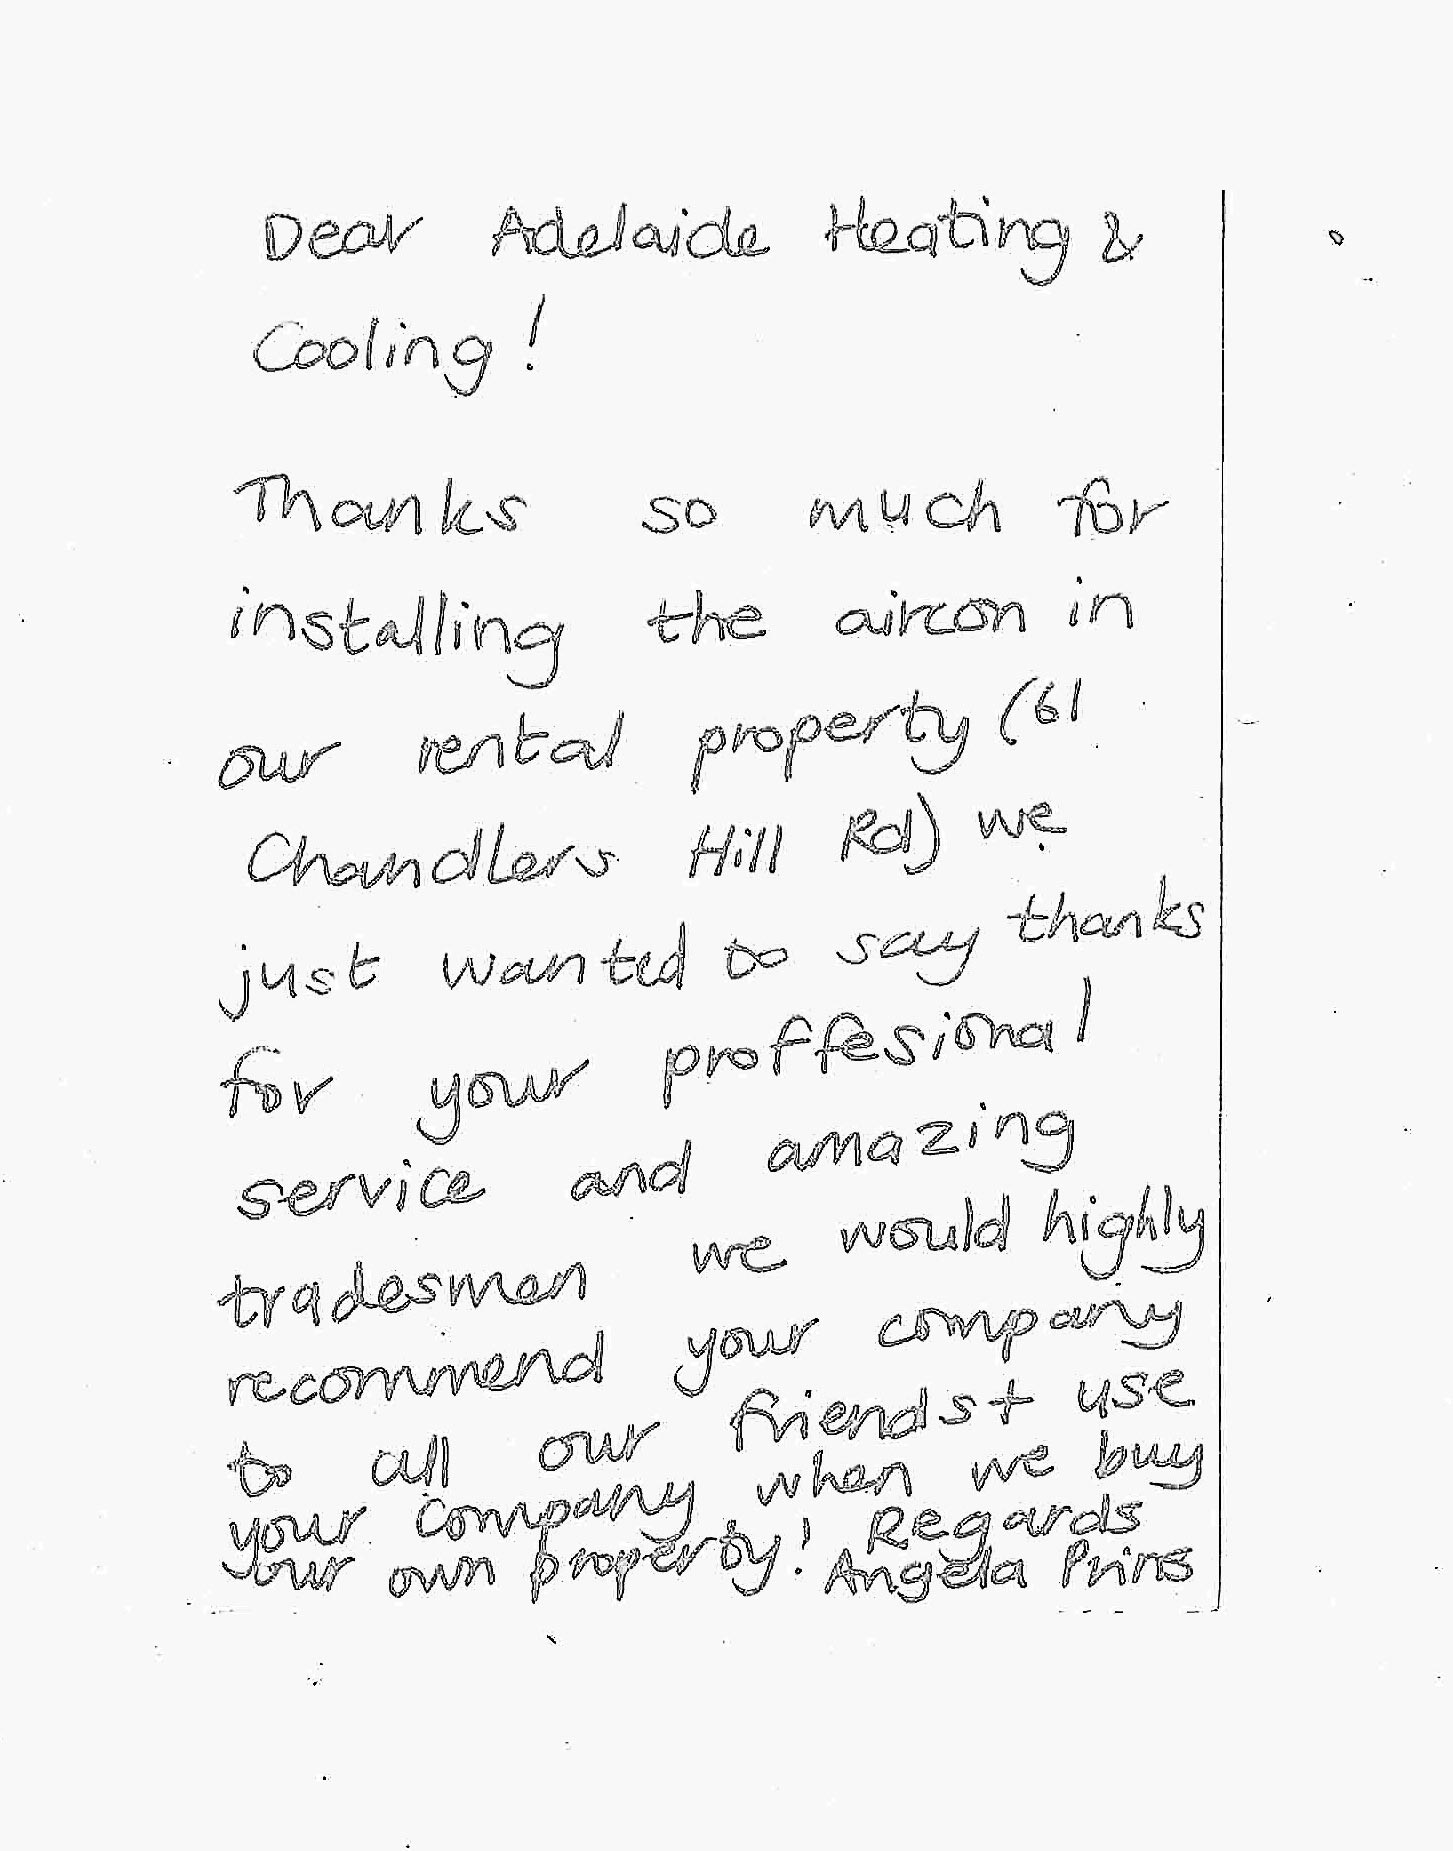 Dear Adelaide Heating &
Cooling!
Thanks so much for
installing the aircon in
our rental property (61
Chandlers Hill Rd) we
just wanted to say thanks
for your proffesional
service and amazing
tradesmen we would highly
recommend your company
to all our friends + use
your company when we buy
your own property! Regards
Angela Prins